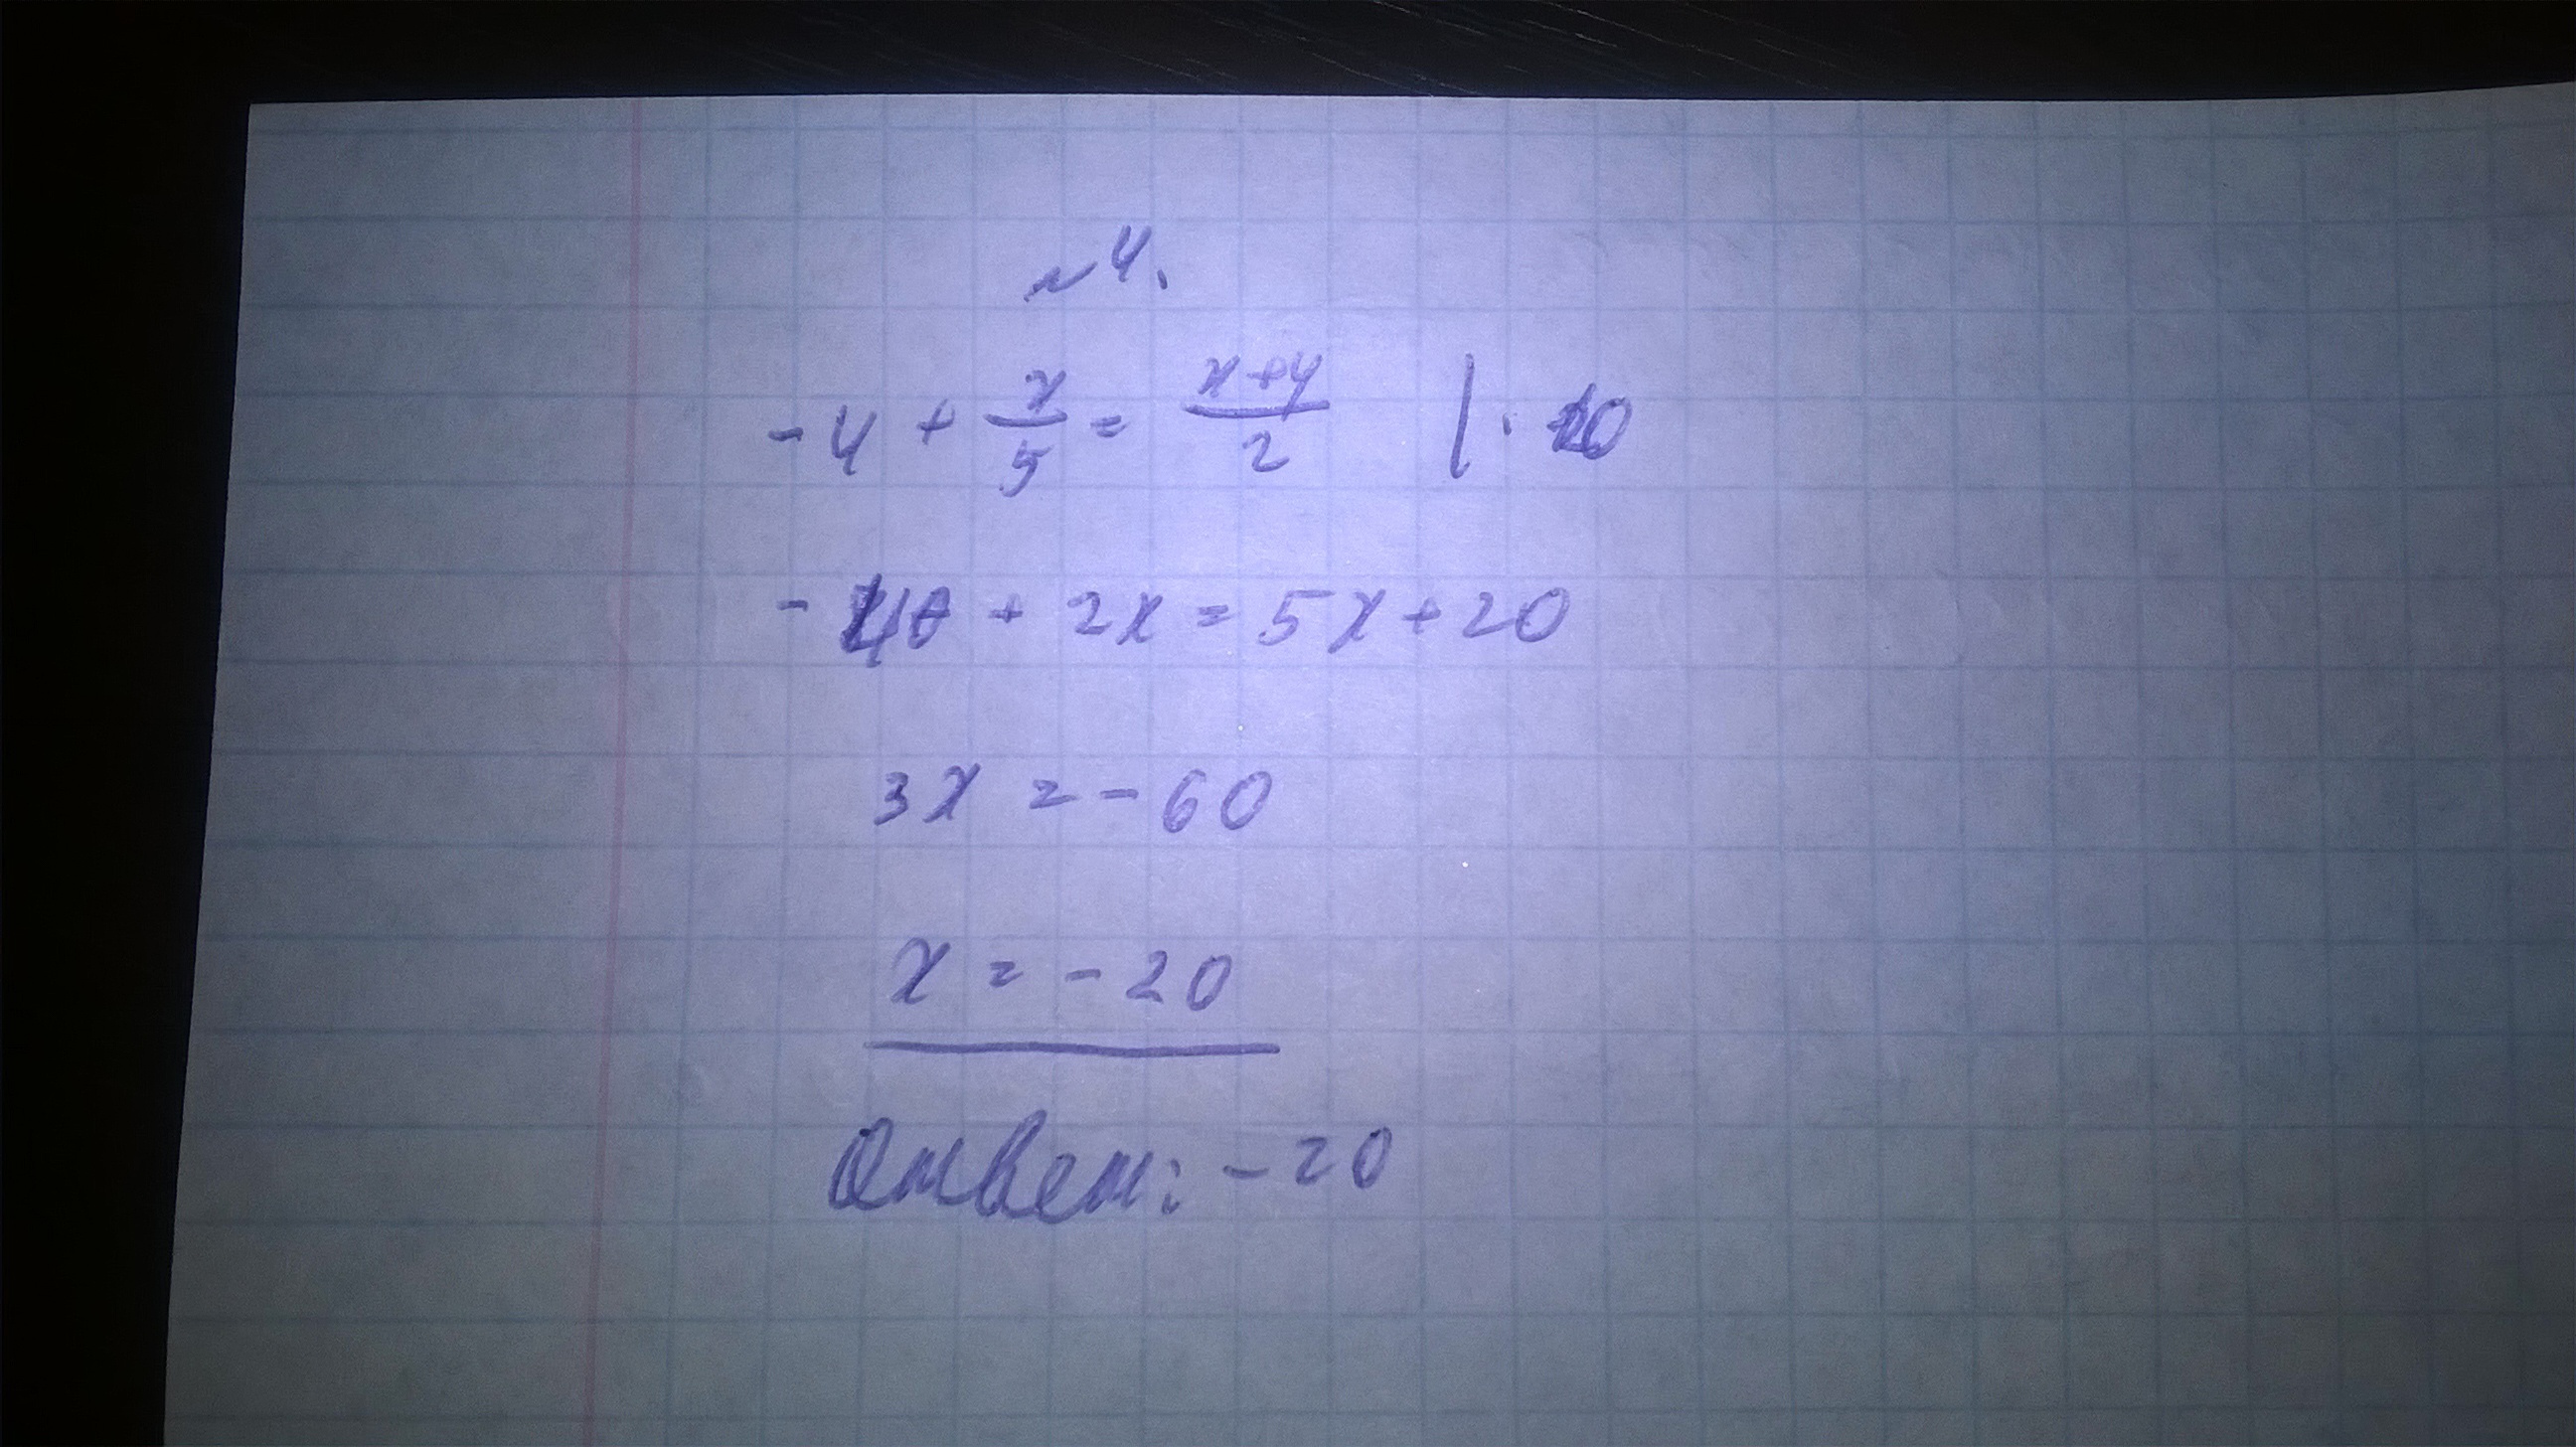 №4.
-4 + x/5 = x+4/2 | · 10
-40 + 2x = 5x + 20
3x = -60
x = -20
Ответ: -20